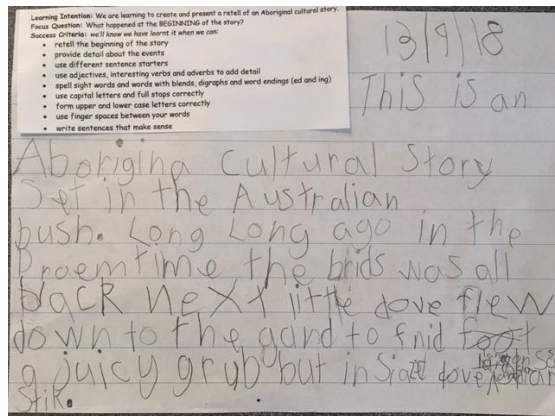 Learning Intention: We are learning to create and present a retell of an Aboriginal cultural story.
Focus Question: What happened at the BEGINNING of the story?
Success Criteria: we'll know we have learnt it when we can:
• retell the beginning of the story
• provide detail about the events
• use different sentence starters
• use adjectives, interesting verbs and adverbs to add detail
• spell sight words and words with blends, digraphs and word endings (ed and ing)
• use capital letters and full stops correctly
• form upper and lower case letters correctly
• use finger spaces between your words
• write sentences that make sense
13/9/18
This is an
Aborigina cultural Story
Set in the Australian
bush. Long Long ago in the
Draemtime the brids was all
black next little dove flew
down to the gand to fnid
a juicy grub but insiad dove
Stik.